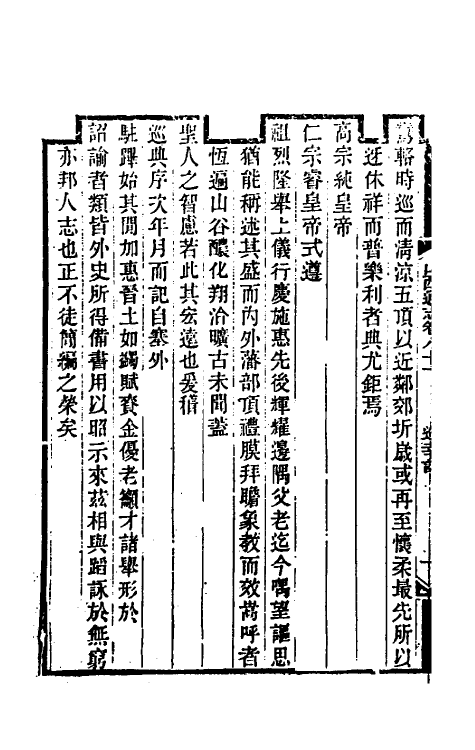 鑾輅時巡而清涼五頂以近鄰郊圻歲或再至懷柔最先所以
迓休祥而普樂利者典尤鉅焉
高宗純皇帝
仁宗睿皇帝式遵
祖烈隆舉上儀行慶施惠先後輝耀邊隅父老迄今喁望謳思
猶能稱述其盛而內外藩部頂禮膜拜瞻象教而效嵩呼者
恆遍山谷醲化翔洽曠古未聞蓋
聖人之智慮若此其宏遠也爰稽
巡典序次年月而記自塞外
駐蹕始其間加惠晉土如蠲賦賚金優老籲才諸舉形於
詔諭者類皆外史所得備書用以昭示來茲相與蹈詠於無窮
亦邦人志也正不徒簡編之榮矣
山西通志卷八十一
巡幸記